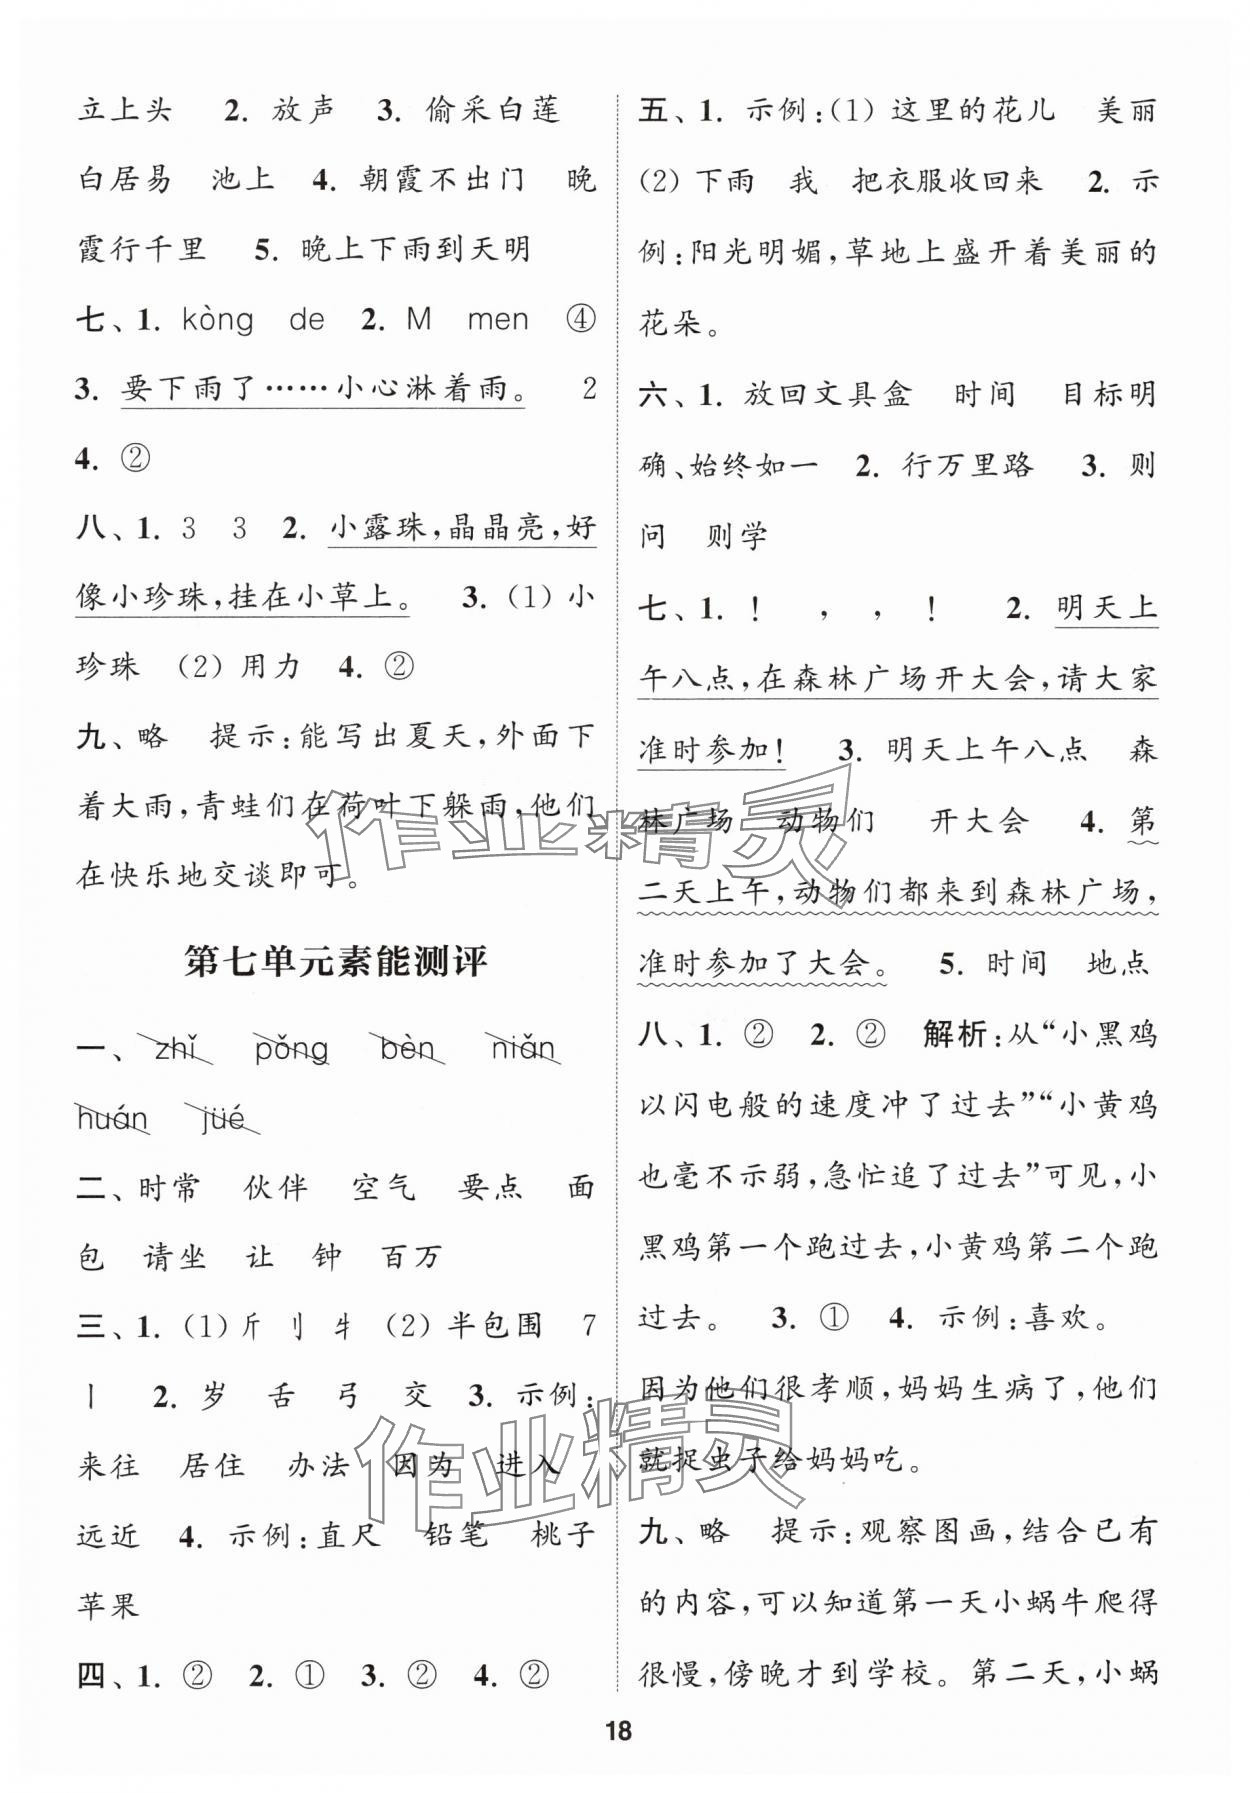 立上头 2. 放声 3. 偷采白莲
白居易 池上 4. 朝霞不出门 晚
霞行千里 5. 晚上下雨到天明
七、1. kòng de 2. M men ④
3. 要下雨了……小心淋着雨。 2
4. ②
八、1. 3 3 2. 小露珠,晶晶亮,好
像小珍珠,挂在小草上。 3. (1)小
珍珠 (2)用力 4. ②
九、略 提示:能写出夏天,外面下
着大雨,青蛙们在荷叶下躲雨,他们
在快乐地交谈即可。
第七单元素能测评
一、zhǐ pǒng bèn niǎn
huán jüé
二、时常 伙伴 空气 要点 面
包 请坐 让 钟 百万
三、1. (1)斤 刂 牜 (2)半包围 7
丨 2. 岁 舌 弓 交 3. 示例:
来往 居住 办法 因为 进入
远近 4. 示例:直尺 铅笔 桃子
苹果
四、1. ② 2. ① 3. ② 4. ②
五、1. 示例:(1)这里的花儿 美丽
(2)下雨 我 把衣服收回来 2. 示
例:阳光明媚,草地上盛开着美丽的
花朵。
六、1. 放回文具盒 时间 目标明
确、始终如一 2. 行万里路 3. 则
问 则学
七、1. ! , , ! 2. 明天上
午八点,在森林广场开大会,请大家
准时参加! 3. 明天上午八点 森
林广场 动物们 开大会 4. 第
二天上午,动物们都来到森林广场,
准时参加了大会。 5. 时间 地点
八、1. ② 2. ② 解析:从“小黑鸡
以闪电般的速度冲了过去”“小黄鸡
也毫不示弱,急忙追了过去”可见,小
黑鸡第一个跑过去,小黄鸡第二个跑
过去。 3. ① 4. 示例:喜欢。
因为他们很孝顺,妈妈生病了,他们
就捉虫子给妈妈吃。
九、略 提示:观察图画,结合已有
的内容,可以知道第一天小蜗牛爬得
很慢,傍晚才到学校。第二天,小蜗
18
作业精灵
作业精灵